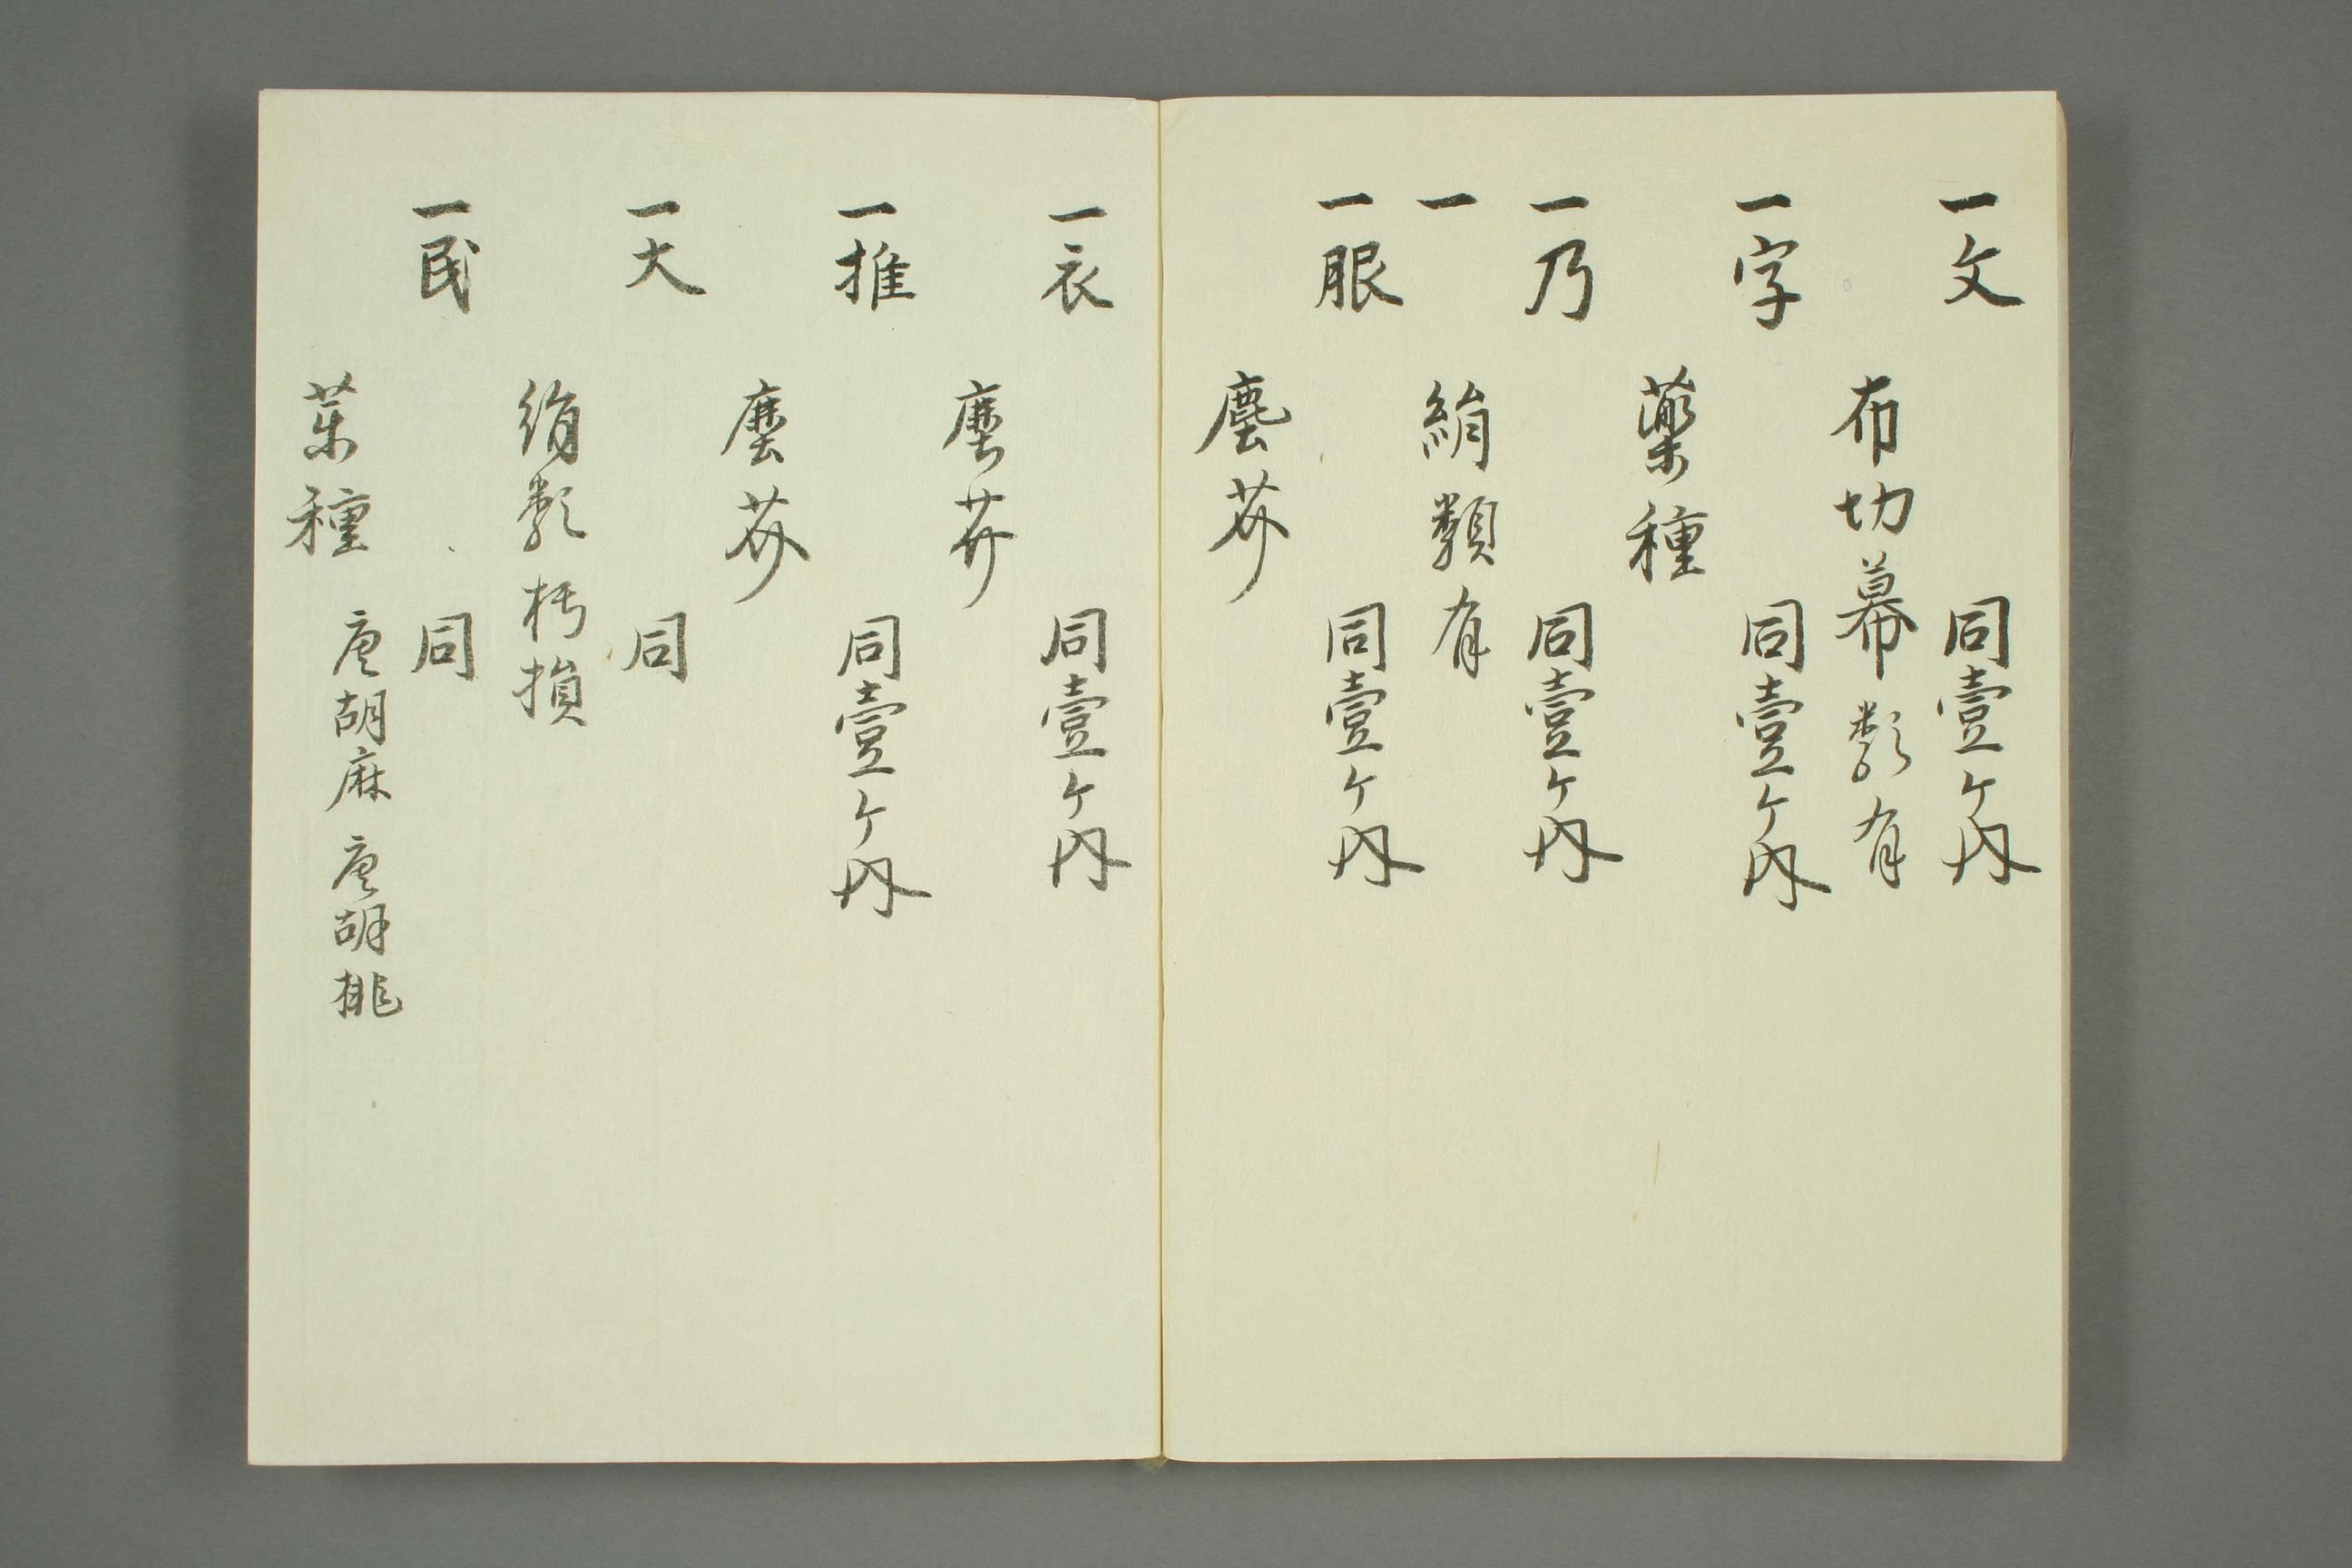 一文　同壹ケ内
布切幕類有
一字　同壹ケ内
薬種
一乃　同壹ケ内
一　絹類有
一服　同壹ケ内
塵芥
一衣　同壹ケ内
塵芥
一推　同壹ケ内
塵芥
一大　同
絹類朽損
一民　同
薬種　唐胡麻　唐胡桃